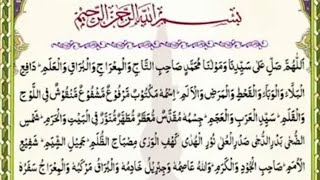 بِسْمِ اللّٰهِ الرَّحْمٰنِ الرَّحِیْمِ
اَللّٰهُمَّ صَلِّ عَلٰی سَیِّدِنَا وَمَوْلٰنَا مُحَمَّدٍ صَاحِبِ التَّاجِ وَالْمِعْرَاجِ وَالْبُرَاقِ وَالْعَلَمِ ۙ دَافِعِ
الْبَلَآءِ وَالْوَبَآءِ وَالْقَحْطِ وَالْمَرَضِ وَالْاَلَمِ ۙ اِسْمُهٗ مَكْتُوْبٌ مَّرْفُوْعٌ مَّشْفُوْعٌ مَّنْقُوْشٌ فِی اللَّوْحِ
وَالْقَلَمِ ۙ سَیِّدِ الْعَرَبِ وَالْعَجَمِ ۙ جِسْمُهٗ مُقَدَّسٌ مُّعَطَّرٌ مُّطَهَّرٌ مُّنَوَّرٌ فِی الْبَیْتِ وَالْحَرَمِ ۙ شَمْسِ
الضُّحٰی بَدْرِ الدُّجٰی صَدْرِ الْعُلٰی نُوْرِ الْهُدٰی كَهْفِ الْوَرٰی مِصْبَاحِ الظُّلَمِ ۙ جَمِیْلِ الشِّیَمِ ۙ شَفِیْعِ
الْاُمَمِ ۙ صَاحِبِ الْجُوْدِ وَالْكَرَمِ ۙ وَاللّٰهُ عَاصِمُهٗ وَجِبْرِیْلُ خَادِمُهٗ وَالْبُرَاقُ مَرْكَبُهٗ وَالْمِعْرَاجُ سَفَرُهٗ